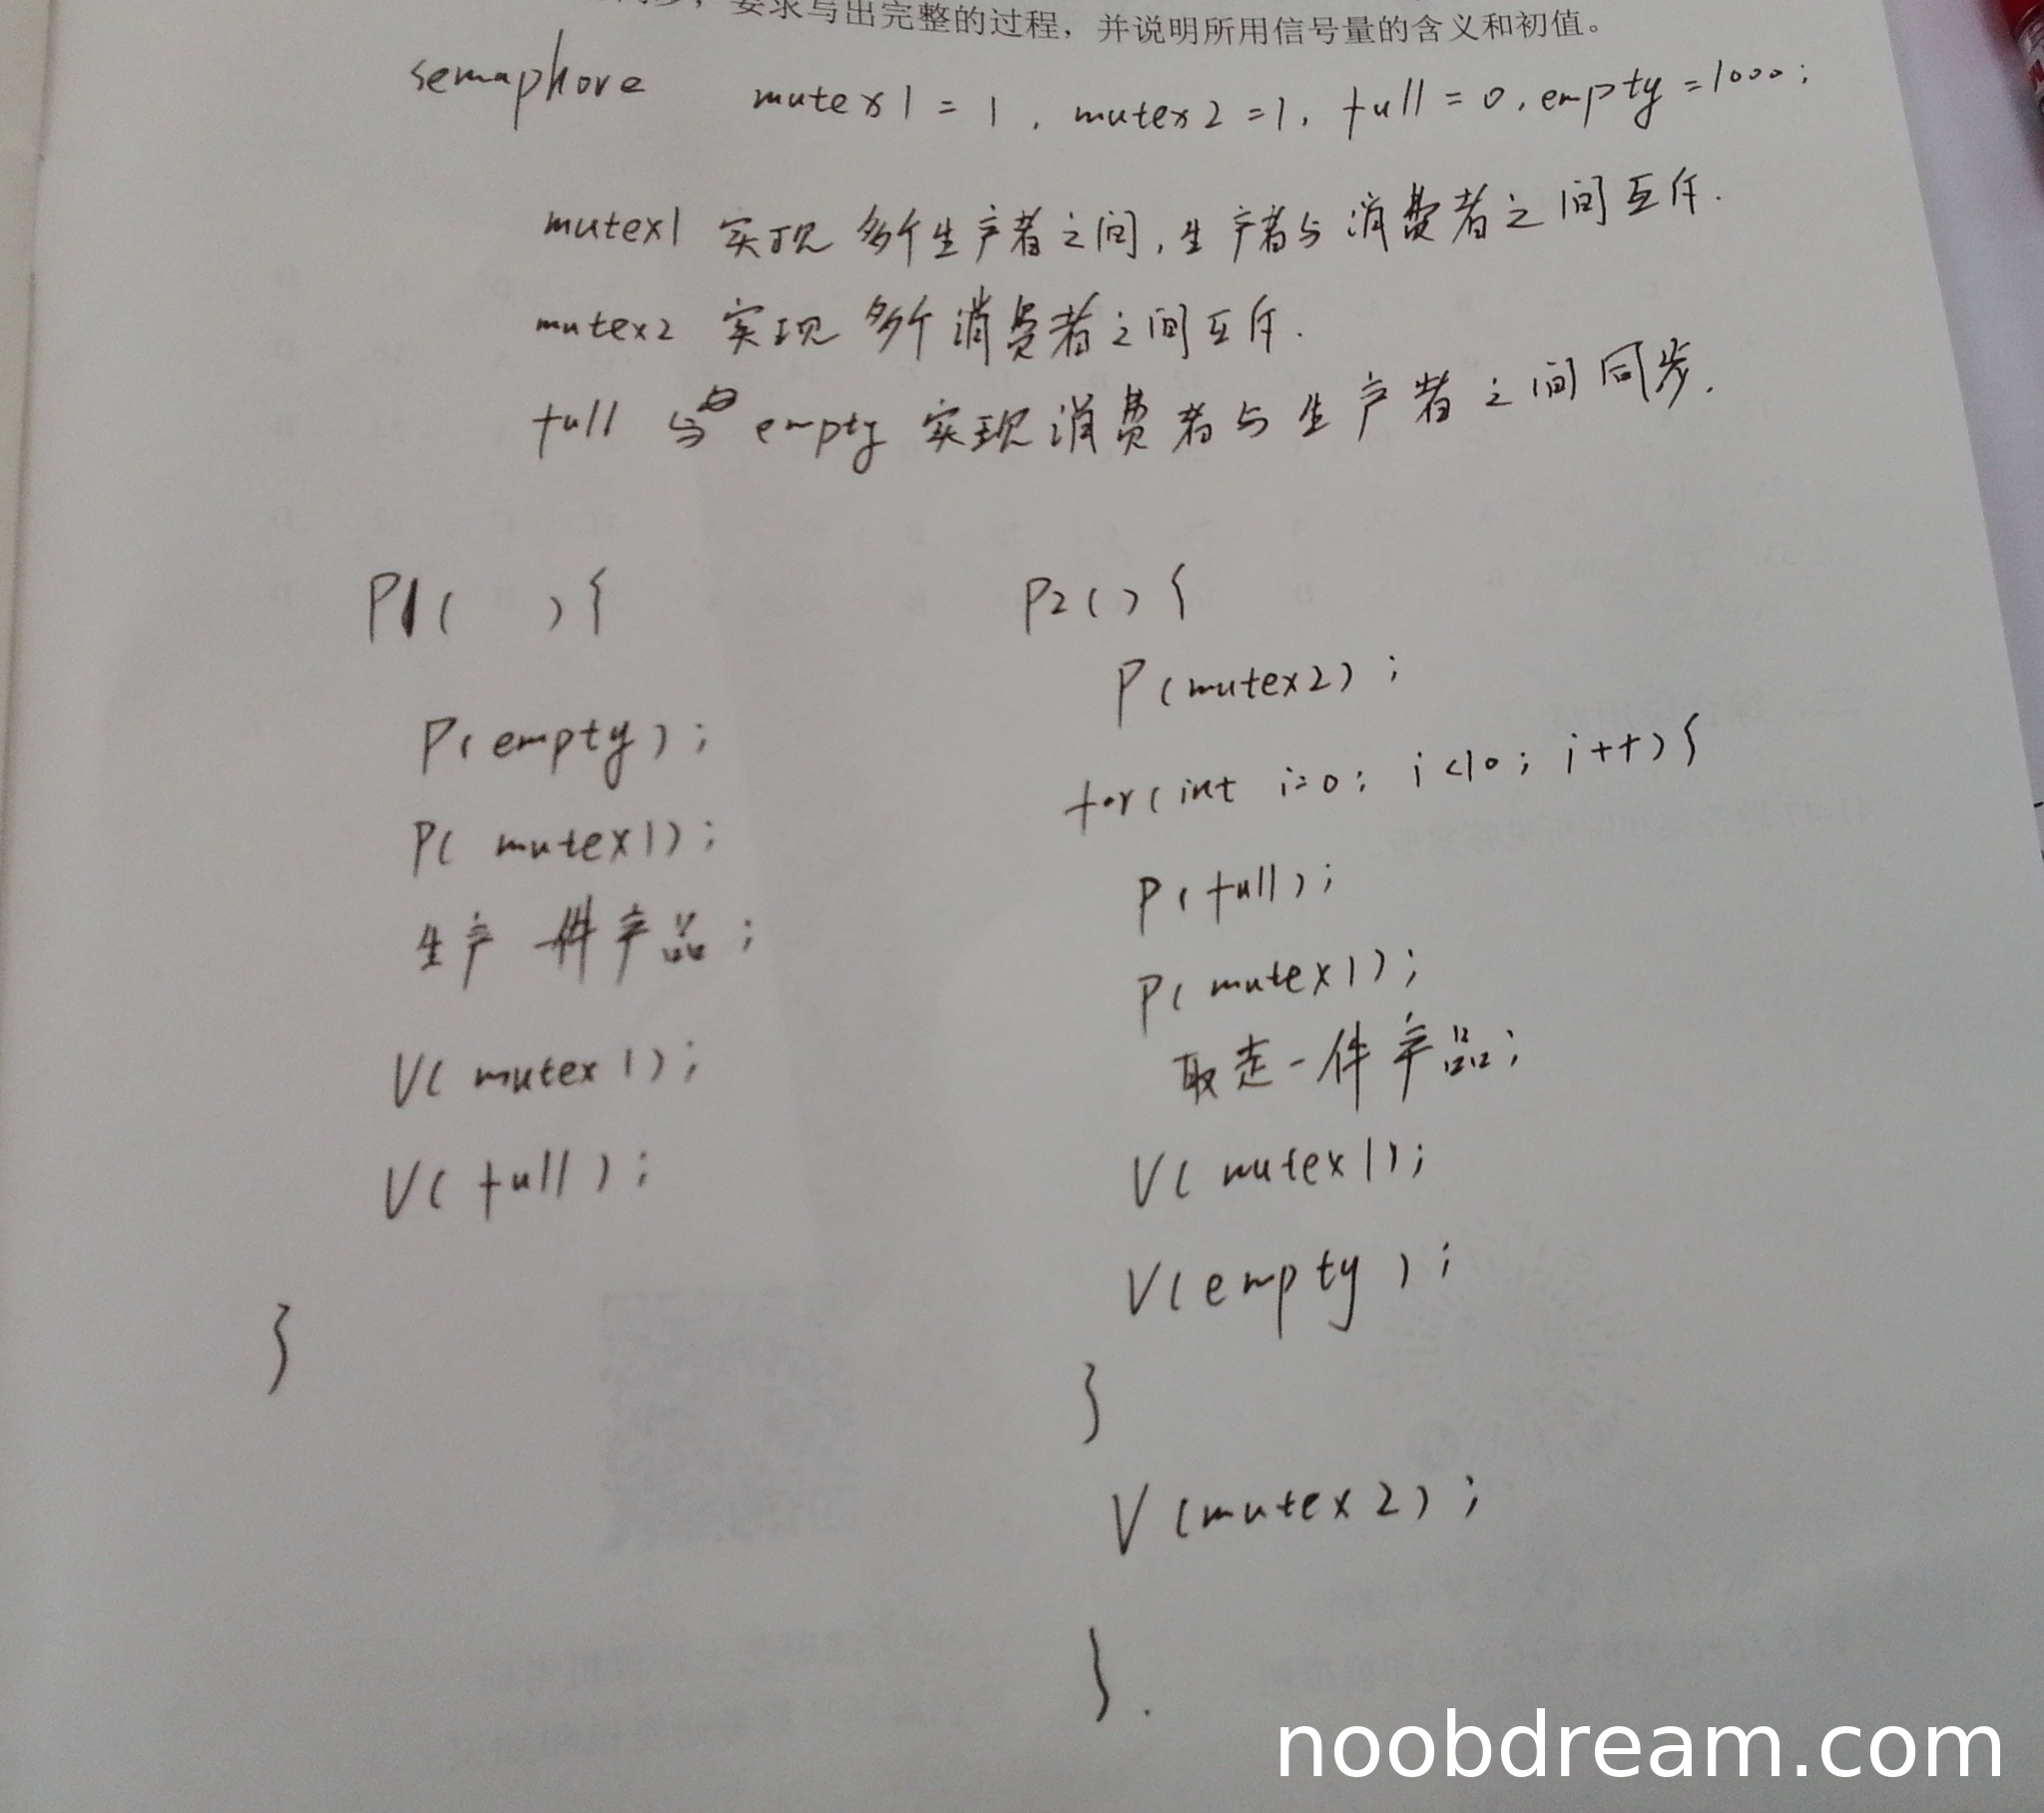 要求写出完整的过程，并说明所用信号量的含义和初值。
semaphore mutex1 = 1, mutex2 = 1, full = 0, empty = 1000;
mutex1 实现 多个生产者之间,生产者与消费者之间互斥.
mutex2 实现 多个消费者之间互斥.
full 与 empty 实现消费者与生产者之间同步.
P1( ){
P(empty);
P(mutex1);
生产一件产品;
V(mutex1);
V(full);
}
P2(){
P(mutex2);
for(int i=0; i<10; i++){
P(full);
P(mutex1);
取走一件产品;
V(mutex1);
V(empty);
}
V(mutex2);
}.
noobdream.com